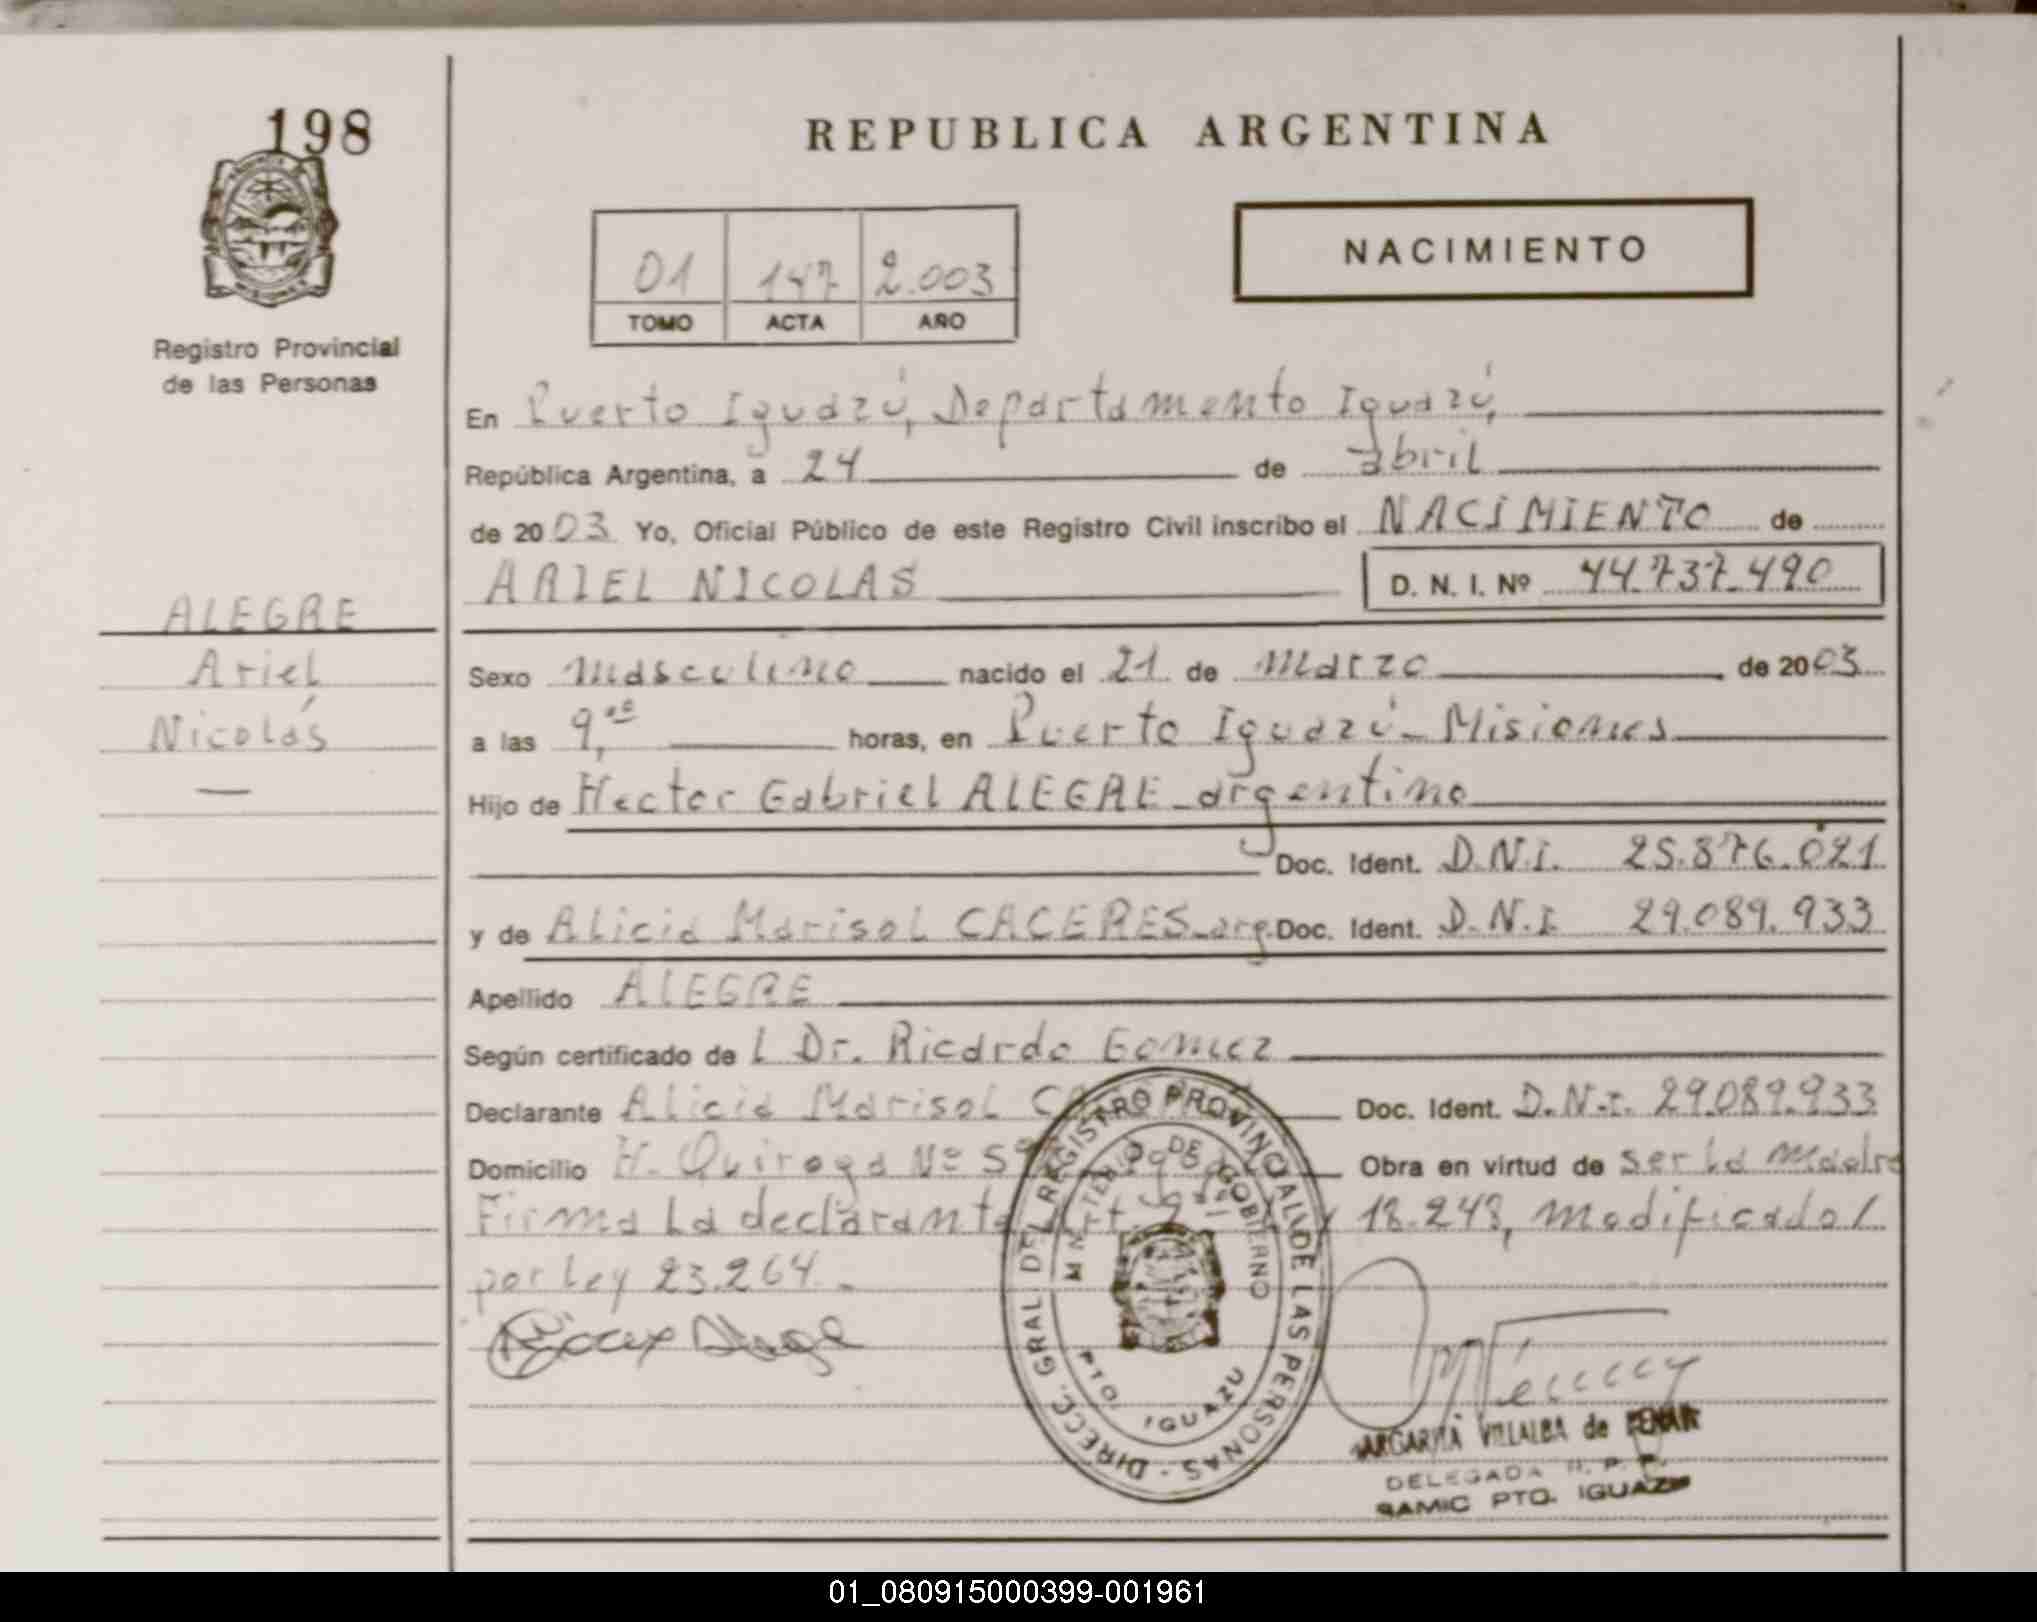 198
REPUBLICA ARGENTINA
NACIMIENTO
01 147 2.003
TOMO ACTA AÑO
Registro Provincial
de las Personas
En Puerto Iguazú, Departamento Iguazú,
República Argentina, a 24 de abril
de 2003 Yo, Oficial Público de este Registro Civil inscribo el NACIMIENTO de
ARIEL NICOLAS D. N. I. Nº 44.737.490
ALEGRE
Ariel
Nicolás
Sexo masculino nacido el 21 de marzo de 2003
a las 9,00 horas, en Puerto Iguazú - Misiones
Hijo de Hector Gabriel ALEGRE - argentino
Doc. Ident. D.N.I. 25.876.021
y de Alicia Marisol CACERES - arg. Doc. Ident. D.N.I. 29.089.933
Apellido ALEGRE
Según certificado de l Dr. Ricardo Gomez
Declarante Alicia Marisol Doc. Ident. D.N.I. 29.089.933
Domicilio H. Quiroga Nº Obra en virtud de ser la madre
Firma la declarante Art. 18.248, modificado/
por Ley 23.264.-
DIRECC. GRAL. DEL REGISTRO PROVINCIAL DE LAS PERSONAS
MINISTERIO DE GOBIERNO
PTO. IGUAZU
MARGARITA VILLALBA de
DELEGADA R. P. P.
SAMIC PTO. IGUAZU
01_080915000399-001961